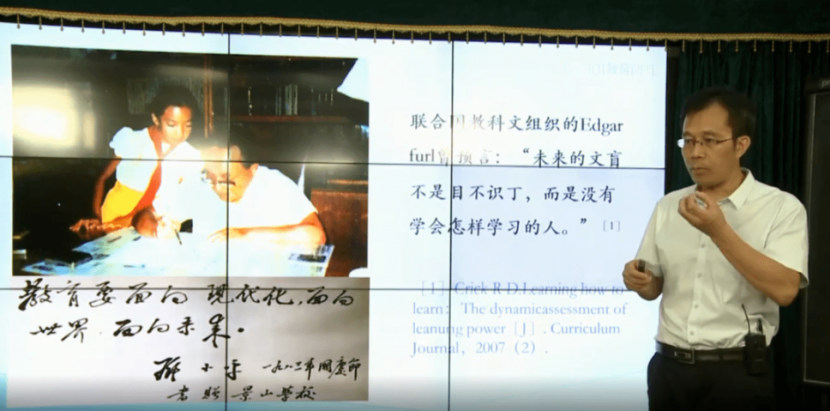 教育要面向 现代化,面向
世界,面向未来。
邓小平 一九八三年国庆节
书赠 景山学校
联合国教科文组织的Edgar
furl曾预言:“未来的文盲
不是目不识丁,而是没有
学会怎样学习的人。” [1]
[1] Crick R D.Learning how to
learn: The dynamicassessment of
leanung power [J] . Curriculum
Journal, 2007 (2) .